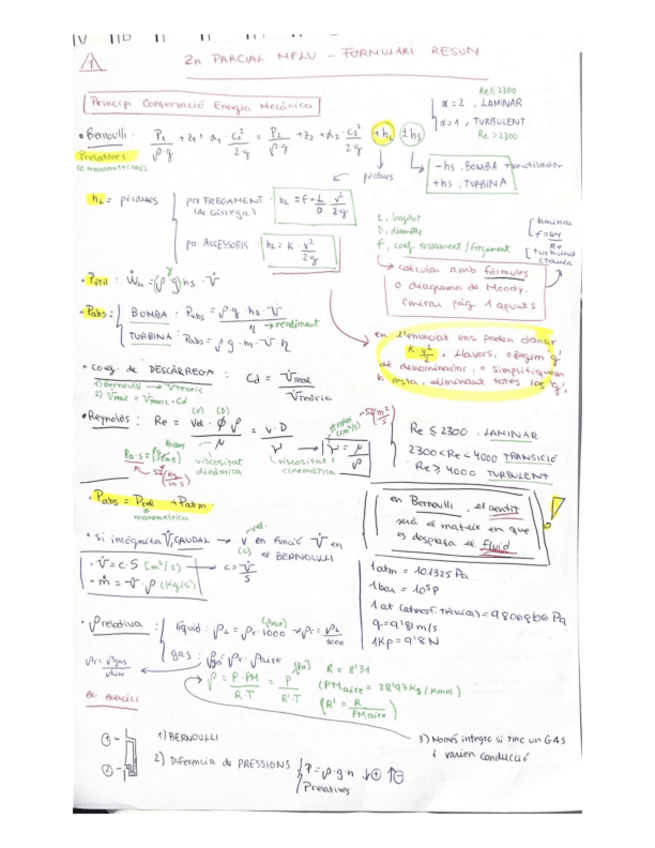 1
2n PARCIAL MFLU - FORMULARI RESUM
Principi Conservació Energia Mecànica
Re≤2300
α=2, LAMINAR
α=1, TURBULENT
Re>2300
• Bernoulli: P1/ρ·g + z1 + α1·c1²/2g = P2/ρ·g + z2 + α2·c2²/2g + hL ± hs
Prelatives
(o manomètriques)
pèrdues
-hs. BOMBA + ventilador
+hs. TURBINA
hL = pèrdues
per FREGAMENT: hL = f·L/D·v²/2g
(de càrrega)
per ACCESSORIS: hL = K·v²/2g
L, longitut
D, diàmetre
f, coef. rossament/fregament
laminar
f=64/Re
turbulent
calcular amb fórmules
o diagrama de Moody.
(mirar pàg 1 apunts
• Pútil: Ẇu = (ρ·g)hs·V̇
γ
• Pabs: BOMBA: Pabs = ρ·g·hs·V̇/η
→ rendiment
TURBINA: Pabs = ρ·g·m·V̇·η
en l'enunciat ens poden donar
K·v²/2. Llavors, o afegim 'g'
al denominador, o simplifiquem
la resta, eliminant totes les 'g'.
• Coef. de DESCÀRREGA: Cd = V̇real/V̇teòric
1) Bernoulli → Vteòric
2) Vreal = Vteòric·Cd
• Reynolds: Re = vel·Ø·ρ/μ = v·D/ν
(V) (D)
ν = μ/ρ
viscositat
dinàmica
(viscositat
cinemàtica)
Re ≤ 2300. LAMINAR
2300<Re<4000 TRANSICIÓ
Re≥4000 TURBULENT
• Pabs = Prel + Patm
manomètrica
en Bernoulli, el sentit
serà el mateix en que
es desplaça el fluid
• Si incògnita V̇, CAUDAL → v en funció V̇ en
vel.
(c)
el BERNOULLI
• V̇ = c·S (m³/s) → c = V̇/S
• ṁ = V̇·ρ (Kg/s)
1atm = 101325 Pa
1bar = 10⁵P
1 at (atmosf. tècnica) = 9806806 Pa
g = 9'81 m/s
1Kp = 9'8 N
• ρrelativa: líquid: ρL = ρr·1000 → ρr = ρL/1000
gas: ρgas = ρr·ρaire
ρr = ρgas/ρaire
ρ = P·PM/R·T = P/R'·T
(Pa)
R = 8'31
(PMaire = 28'97 Kg/Kmol)
(R' = R/PMaire)
ex. exercici
1) BERNOULLI
2) Diferencia de PRESSIONS
P = ρ·g·h ↓⊕ ↑⊖
Prelatives
3) Només integro si tinc un GAS
i varien conducció